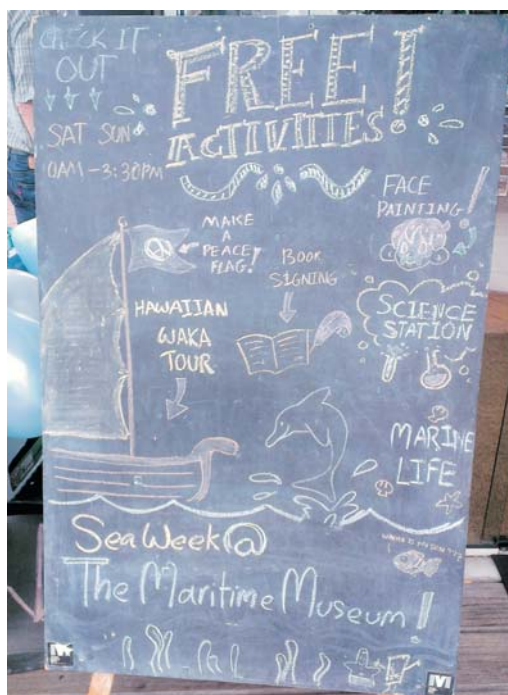 CHECK IT
OUT
SAT SUN
0AM-3:30PM
FREE!
ACTIVITIES!
FACE
PAINTING!
MAKE
A
PEACE
FLAG!
BOOK
SIGNING
SCIENCE
STATION
HAWAIIAN
WAKA
TOUR
MARINE
LIFE
Sea Week@
The Maritime Museum!
M
M